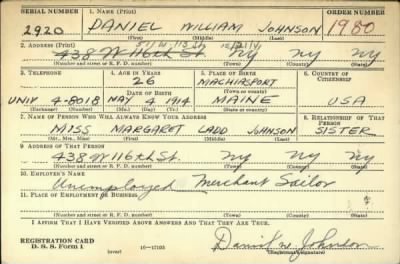 SERIAL NUMBER 1. NAME (Print) ORDER NUMBER
2920 DANIEL WILLIAM JOHNSON 1980
(First) (Middle) (Last)
2. ADDRESS (Print)
438 W 116th St. NY NY NY
(Number and street or R. F. D. number) (Town) (County) (State)
3. TELEPHONE 4. AGE IN YEARS 5. PLACE OF BIRTH 6. COUNTRY OF CITIZENSHIP
26 MACHIASPORT
DATE OF BIRTH (Town or county)
UNIV 4-8018 MAY 4 1914 MAINE USA
(Exchange) (Number) (Mo.) (Day) (Yr.) (State or country)
7. NAME OF PERSON WHO WILL ALWAYS KNOW YOUR ADDRESS 8. RELATIONSHIP OF THAT PERSON
MISS MARGARET LADD JOHNSON SISTER
(Mr., Mrs., Miss) (First) (Middle) (Last)
9. ADDRESS OF THAT PERSON
438 W 116th St. NY NY NY
(Number and street or R. F. D. number) (Town) (County) (State)
10. EMPLOYER'S NAME
Unemployed Merchant Sailor
11. PLACE OF EMPLOYMENT OR BUSINESS
(Number and street or R. F. D. number) (Town) (County) (State)
I AFFIRM THAT I HAVE VERIFIED ABOVE ANSWERS AND THAT THEY ARE TRUE.
REGISTRATION CARD
D. S. S. Form 1 (over) 16-17105 Daniel W. Johnson
(Registrant's signature)